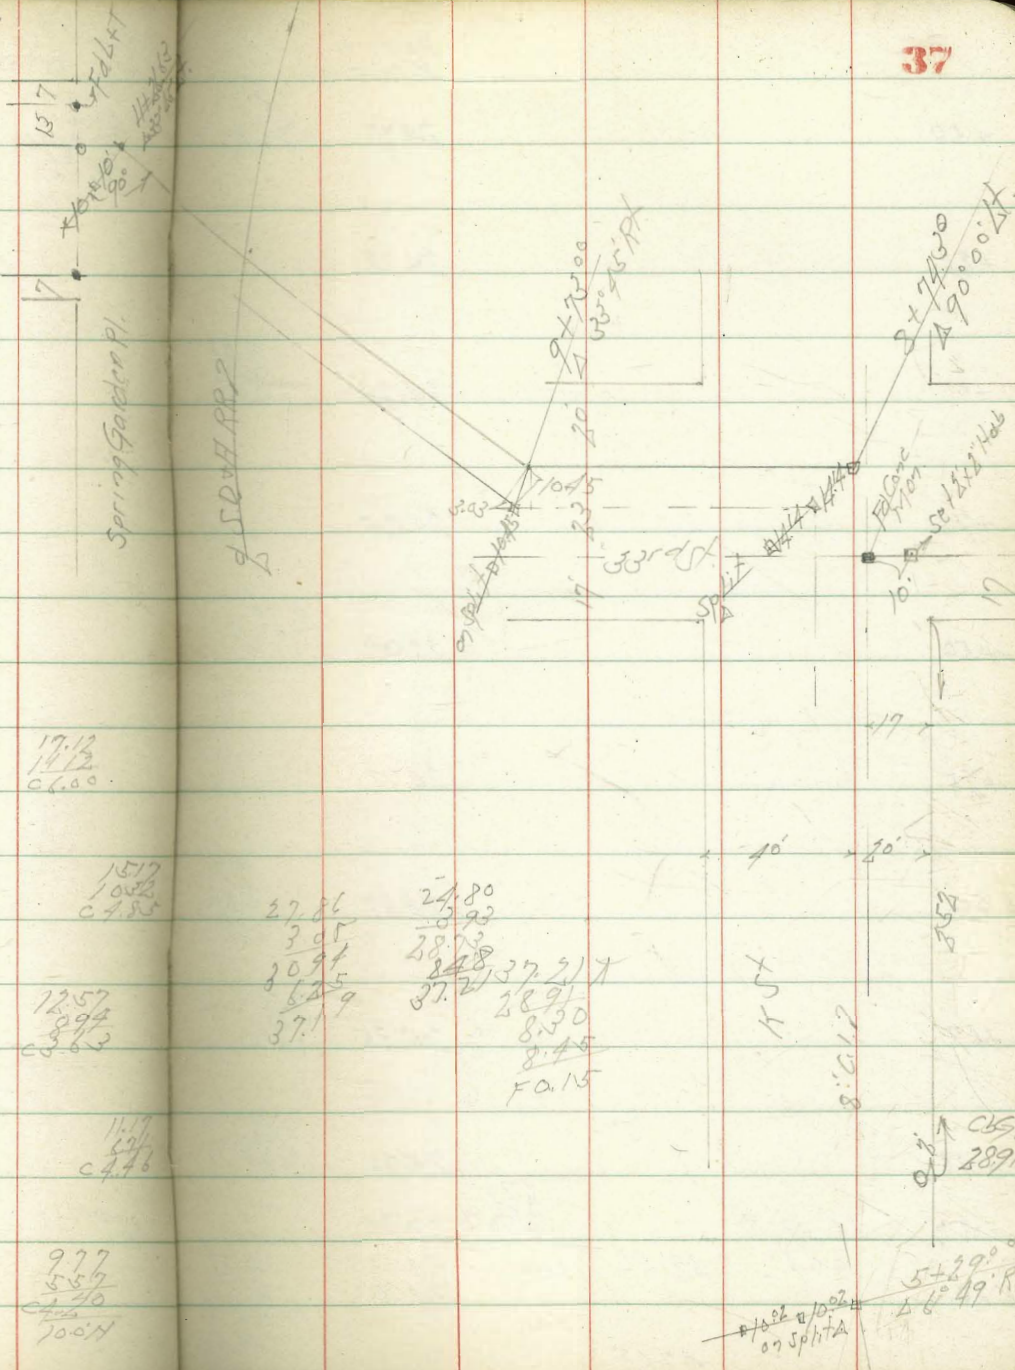 37
Fd L+T
15 7
90°
7
Spring Garden Pl.
SD&ARR?
9+73.00
Δ 33°45' Rt
8+74.30
Δ 90°00' Lt
20'
10.45
23.5
17'
5.03
on Split
10.45
33rd St.
Split Δ
14.14
14.14
Fd Conc
Mon.
Set 2"x2" Hub
10'
17
17
40'
20'
K St
8" C.I.?
17.12
11.12
C 6.00
15.17
10.32
C 4.85
12.57
8.94
C 3.63
11.17
6.71
C 4.46
9.77
5.57
C 4.20
27.86
3.08
30.94
6.25
37.19
24.80
3.93
28.73
8.48
37.21
37.21
28.91
8.30
8.45
F 0.15
28.9
5+29
Δ 6°49' R
10.02
10.02
on Split Δ